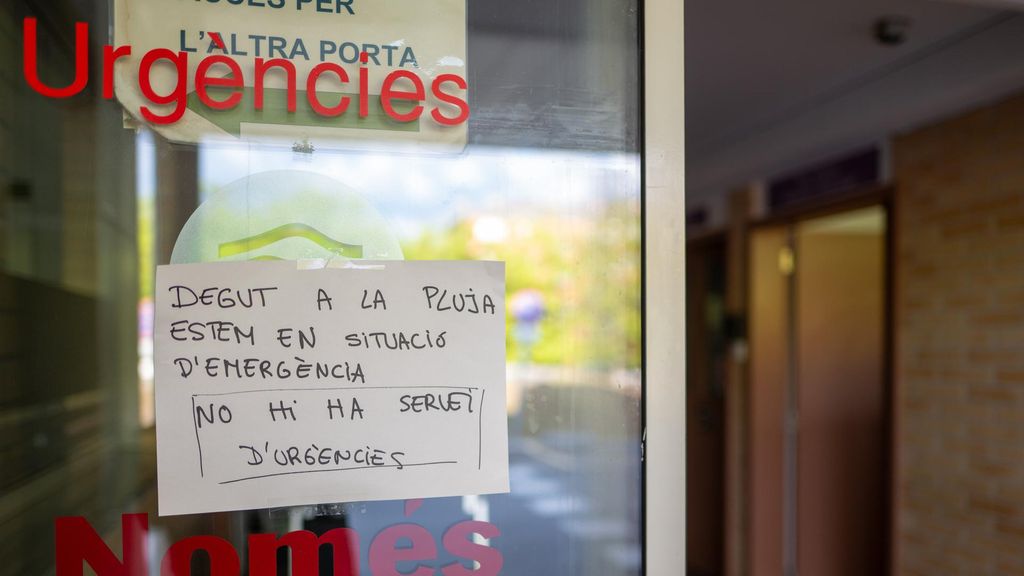 PER
L'ALTRA PORTA
Urgències
DEGUT A LA PLUJA
ESTEM EN SITUACIÓ
D'EMERGÈNCIA
NO HI HA SERVEI
D'URGÈNCIES
Només